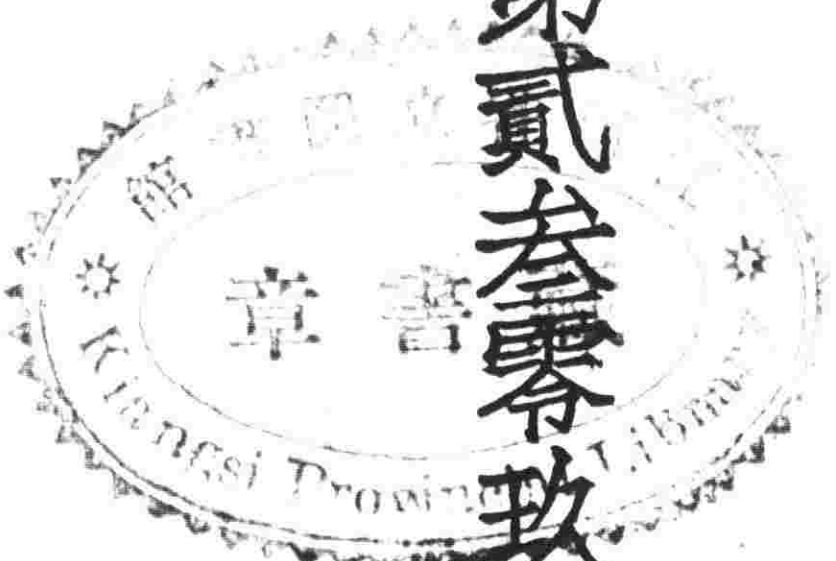 第貳叁零玖
館書圖
章書
Kiangsi Provincial Library